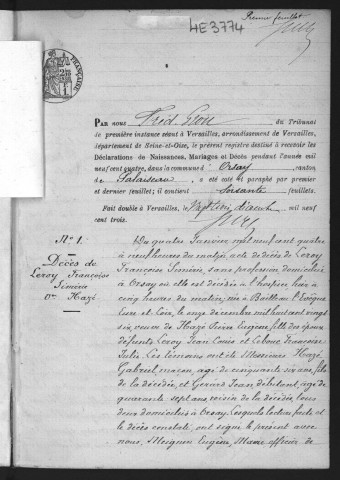 Premier feuillet
4E3774
PAR nous du Tribunal
de première instance séant à Versailles, arrondissement de Versailles,
département de Seine-et-Oise, le présent registre destiné à recevoir les
Déclarations de Naissances, Mariages et Décès pendant l'année mil
neuf cent quatre, dans la commune d' Orsay, canton
de Palaiseau, a été coté et paraphé par premier
et dernier feuillet; il contient Soixante feuillets.
Fait double à Versailles, le mil neuf
cent trois.
N° 1.
Décès de
Leroy Françoise
Siméie
Vve Hazé
Du quatre Janvier mil neuf cent quatre
à neuf heures du matin, acte de décès de Leroy
Françoise Siméie, sans profession domiciliée
à Orsay où elle est décédée à l'hospice hier à
cinq heures du matin, née à Bailleau l'Evêque
Eure et Loir, le onze décembre mil huit cent vingt
six veuve de Hazé Eugène, fille des époux
défunts Leroy Jean Louis et Françoise
Julie. Les témoins ont été Messieurs Hazé
Gabriel, maçon, âgé de cinquante six ans, fils
de la décédée, et Jean débitant, âgé de
quarante sept ans, voisin de la décédée, tous
deux domiciliés à Orsay, lesquels lecture faite et
le décès constaté, ont signé le présent avec
nous, Meignen Eugène, Maire officier de